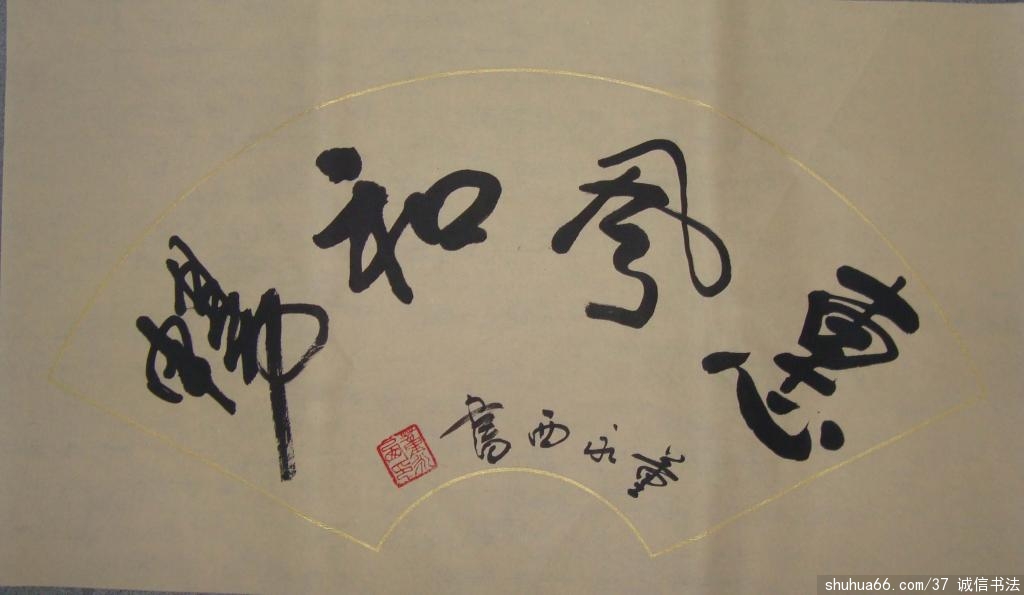 惠風和暢
董永西書
shuhua66.com/37 诚信书法